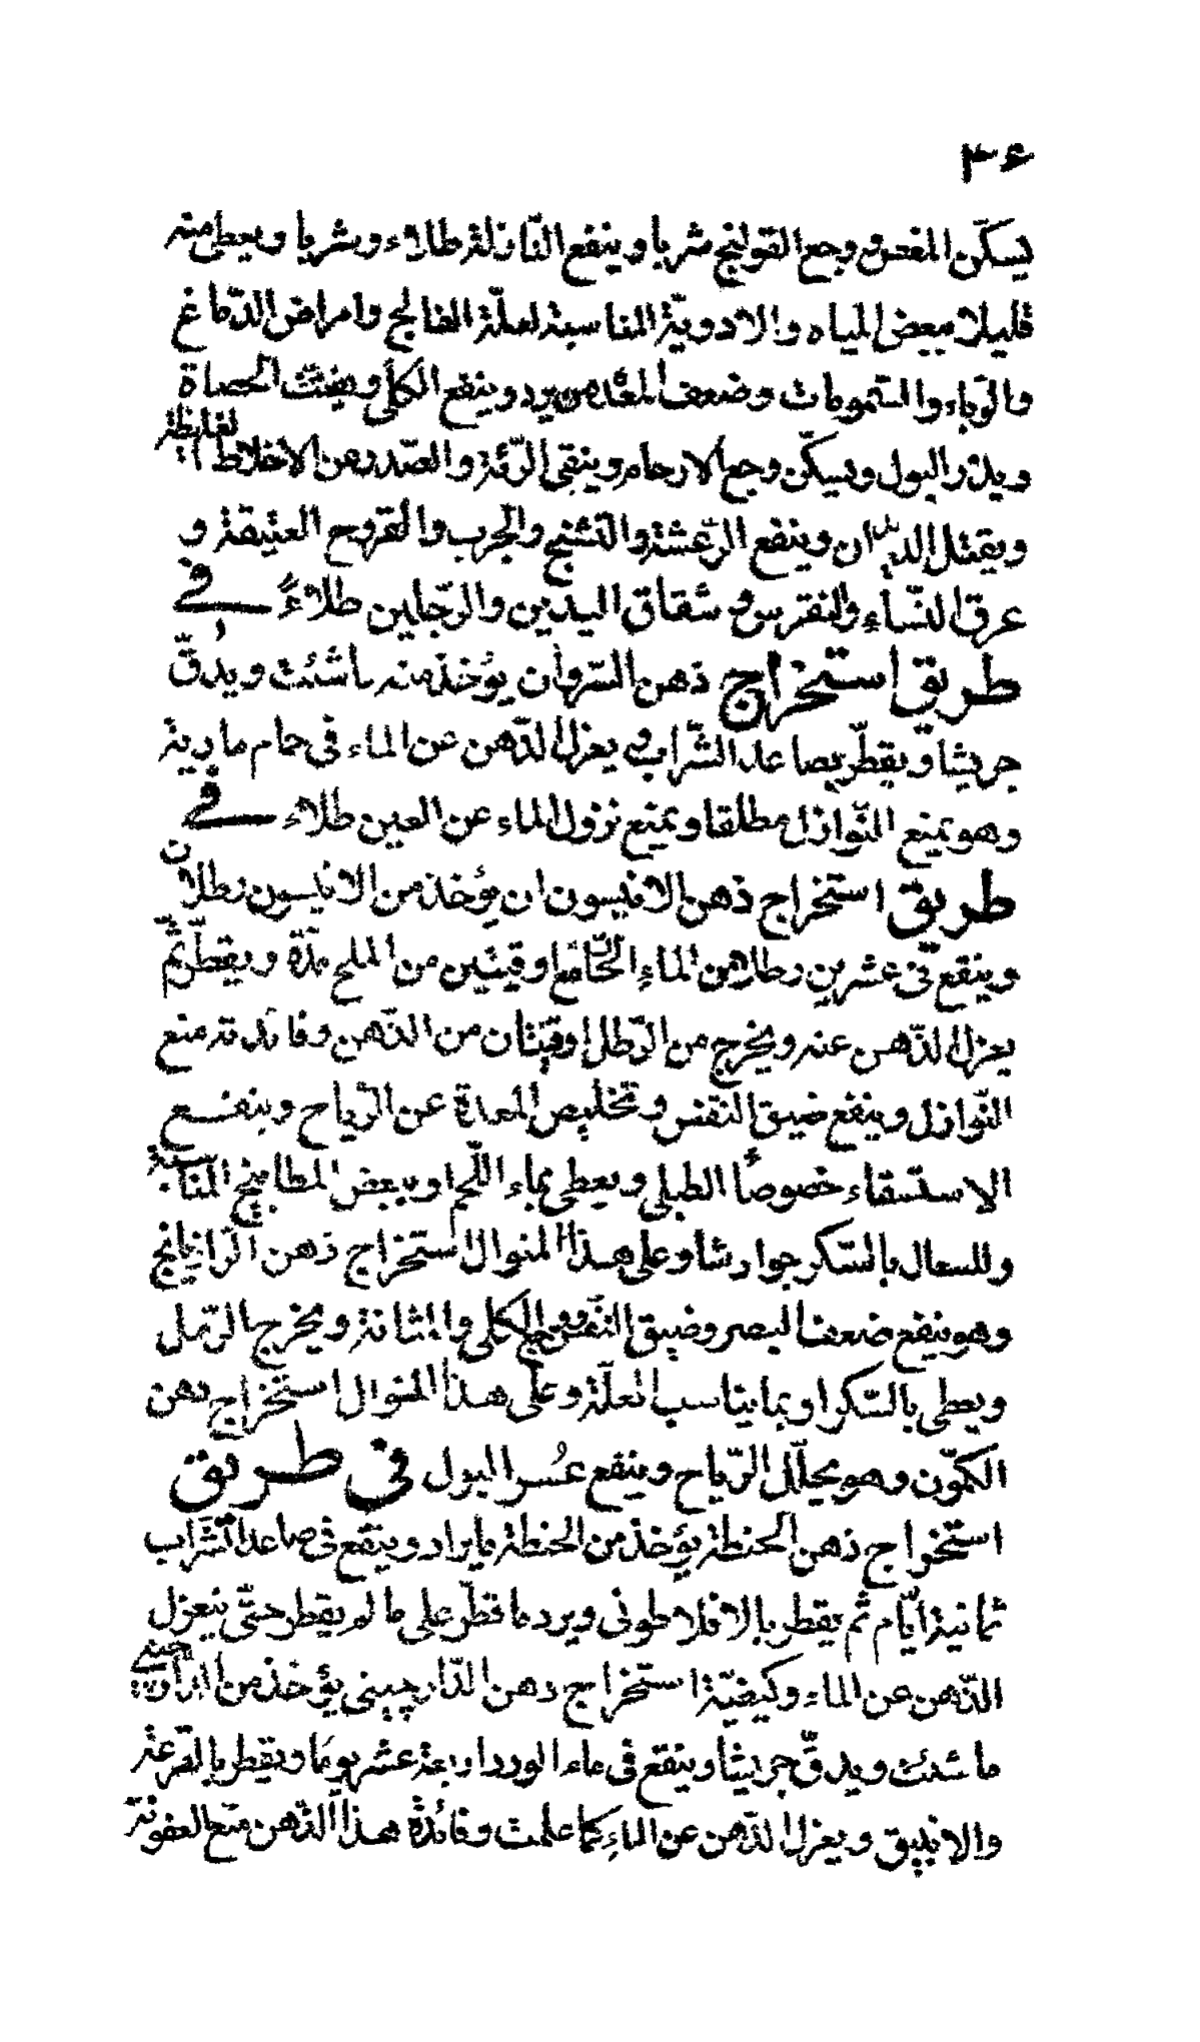 ٣٤
يسكّن المغص و وجع القولنج شربا و ينفع النّازلة طلاء و شربا و يعطى منه
قليلا ببعض المياه والادويّة المناسبة لعلّة الفالج وامراض الدّماغ
والوباء والسّمومات وضعف المعدة من برد و ينفع الكلى ويفتّت الحصاة
ويدرّ البول ويسكّن وجع الارحام وينقى الرّئة والصّدر من الاخلاط الغليظة
ويقتل الديدان وينفع الرّعشة والتّشنج والجرب والقروح العتيقة و
عرق النّساءِ والنقرس و شقاق اليدين والرّجلين طلاءً في
طريق استخراج ذهن السّروان يؤخذ منه ما شئت ويُدقّ
جريشا و يقطّر بصاعد الشّراب و يعزل الدّهن عن الماء فى حمام مارية
وهو يمنع النّوازل مطلقا ويمنع نزول الماء عن العين طلاء في
طريق استخراج ذهن الانيسون ان يؤخذ من الانيسون رطلان
وينقع فى عشرين رطلا من الماءِ الحّار مع اوقيتين من الملح مدّة ويقطّر ثمّ
يعزل الدّهن عنه ويخرج من الرّطل اوقيتان من الدّهن وفائدته منع
النّوازل وينفع ضيق النّفس وتخليص المعدة عن الرّياح وينفع
الاستسقاء خصوصًا الطبلى ويعطى بماء اللّحم او ببعض المطابيخ المناسبة
وللسعال بالسّكر جوارشا وعلى هذا المنوال استخراج ذهن الرّازيانج
وهو ينفع ضعف البصر وضيق النّفس و وجع الكلى والمثانة ويخرج الرّمل
ويعطى بالسّكر او بما يناسب العلّة وعلى هذا المنوال استخراج دهن
الكمّون وهو يحلّل الرّياح وينفع عُسر البول فى طريق
استخراج ذهن الحنطة يؤخذ من الحنطة ما يراد وينقع فى صاعد الشّراب
ثمانية ايّام ثم يقطر بالافلاطونى ويرد ما قطّر على ما لم يقطر حتّى ينعزل
الدّهن عن الماء وكيفيّة استخراج دهن الدّارچينى يؤخذ من الدّارچينى
ما شئت ويدقّ جريشا وينقع فى ماء الورد اربعة عشر يوما ويقطر بالقرعة
والانبيق ويعزل الدّهن عن الماءِ كما علمت وفائدة هذا الدّهن منع العفونة